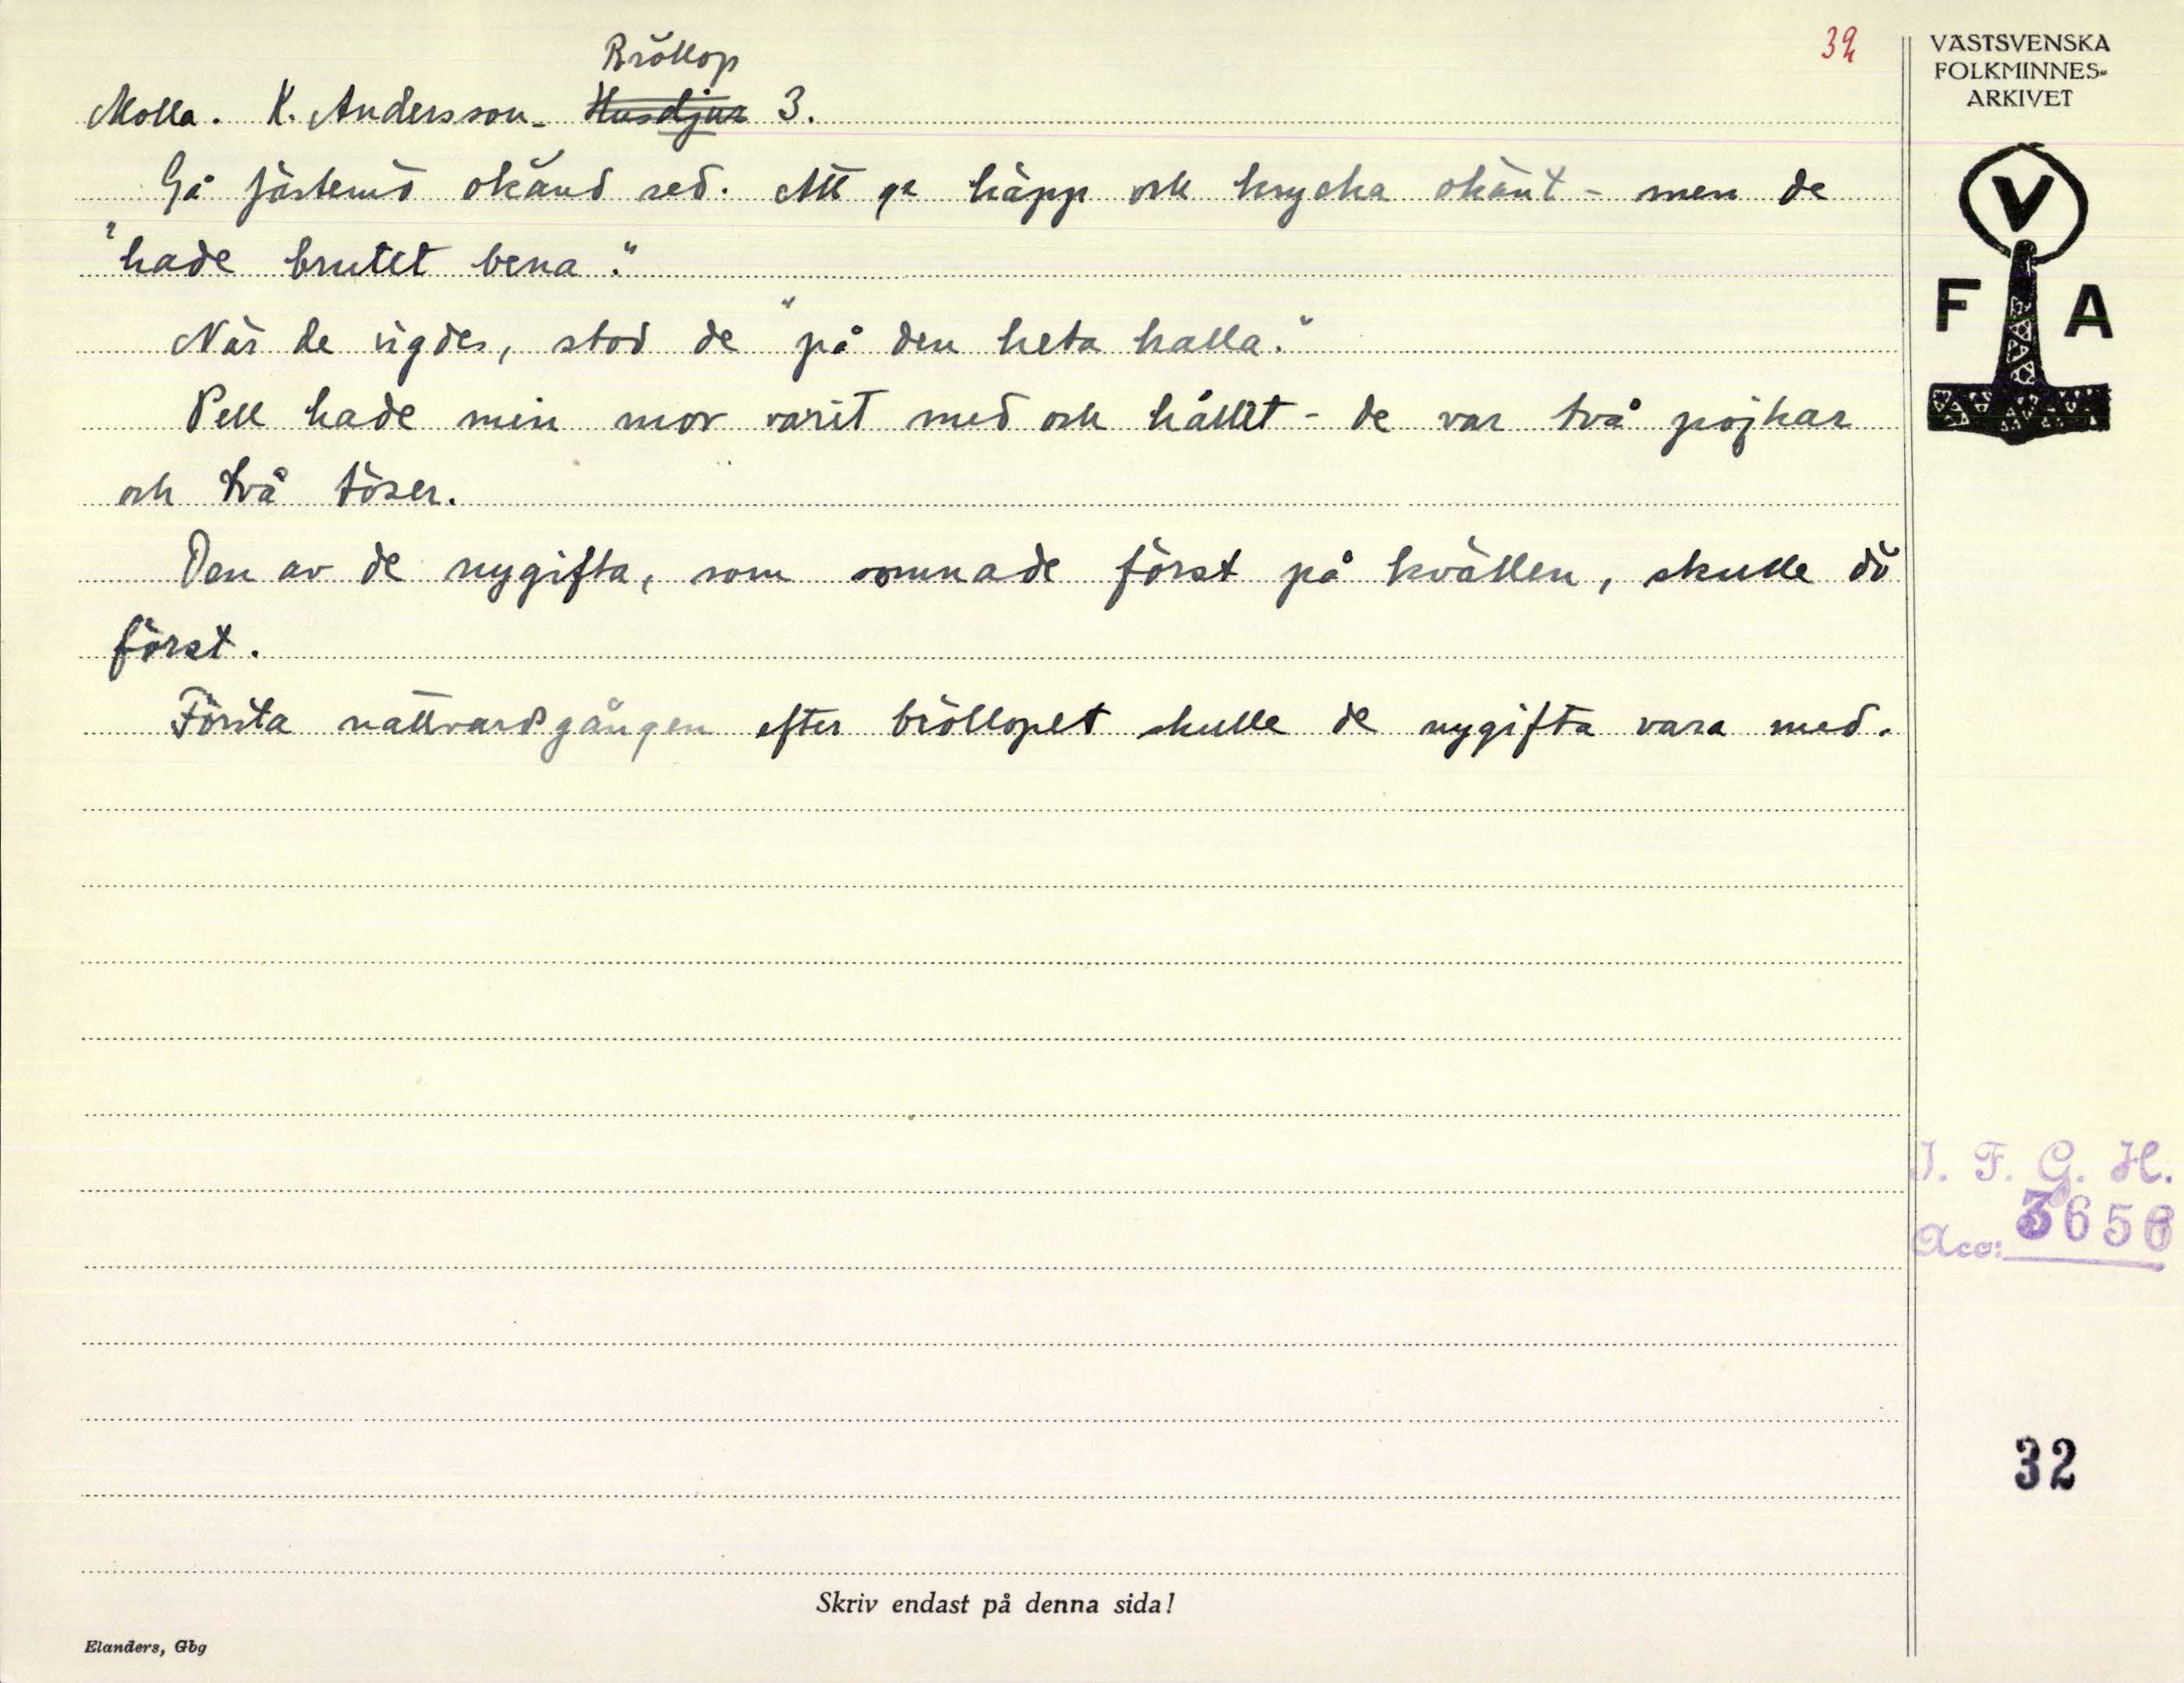 Bröllop
32
Molla. K. Andersson. Husdjur 3.
Gå fästemö okänd sed. Att ge käpp och krycka okänt - men de
"hade brutet bena."
När de vigdes, stod de "på den heta halla."
Pell hade min mor varit med och hållit - de var två pojkar
och två töser.
Den av de nygifta, som somnade först på kvällen, skulle dö
först.
Första nattvardsgången efter bröllopet skulle de nygifta vara med.
VÄSTSVENSKA
FOLKMINNES-
ARKIVET
V
F A
I. F. G. H.
Acc: 3656
32
Skriv endast på denna sida!
Elanders, Gbg